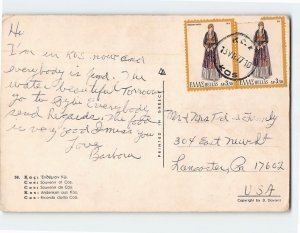 Hi
I'm in KOS now and
everybody is kind. The
water beautiful Tomorrow
go to Everybody
send Regards. The food
is very good I miss you
Love
Barbara
38. Κως: Ἐνθύμιον Κῶ.
Cos: Souvenir of Cos.
Cos: Souvenir de Cos.
Kos: Andenken aus Kos.
Coo: Ricordo dalla Coo.
PRINTED IN GREECE
ΕΛΛΑΣ HELLAS
ΕΛΛΑΣ HELLAS
ΚΩΣ
KOS
Mr & Mrs
304 East New St
Lancaster, Pa 17602
USA
Copyright by